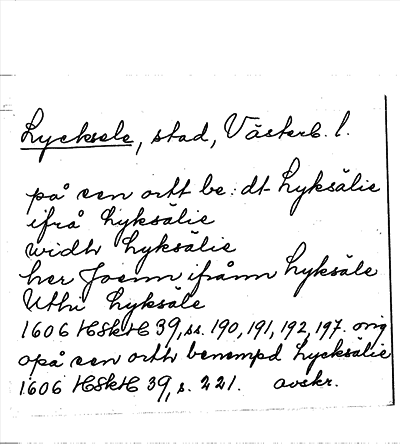 Lycksele, stad, Västerb. l.
på een ortt be:dt Lyksälie
ifrå Lyksälie
widh Lyksälie
her Joenn ifrånn Lyksäle
Uthi Lyksäle
1606 HSkH 39, ss. 190, 191, 192, 197. orig
opå een orth benempd Lycksälie
1606 HSkH 39, s. 221. avskr.